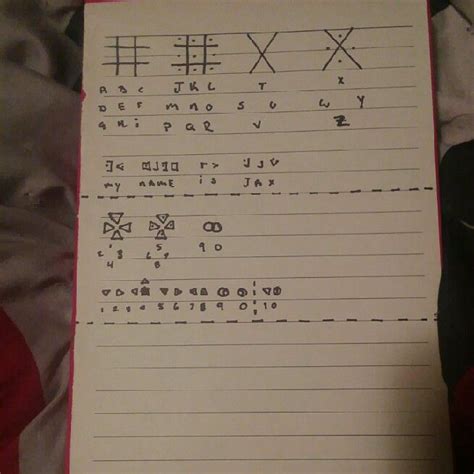 A B C J K L T X
D E F M N O S U W Y
G H I P Q R V Z
MY NAME IS JAX
1 5
2 3 6 7 9 0
4 8
1 2 3 4 5 6 7 8 9 0 10